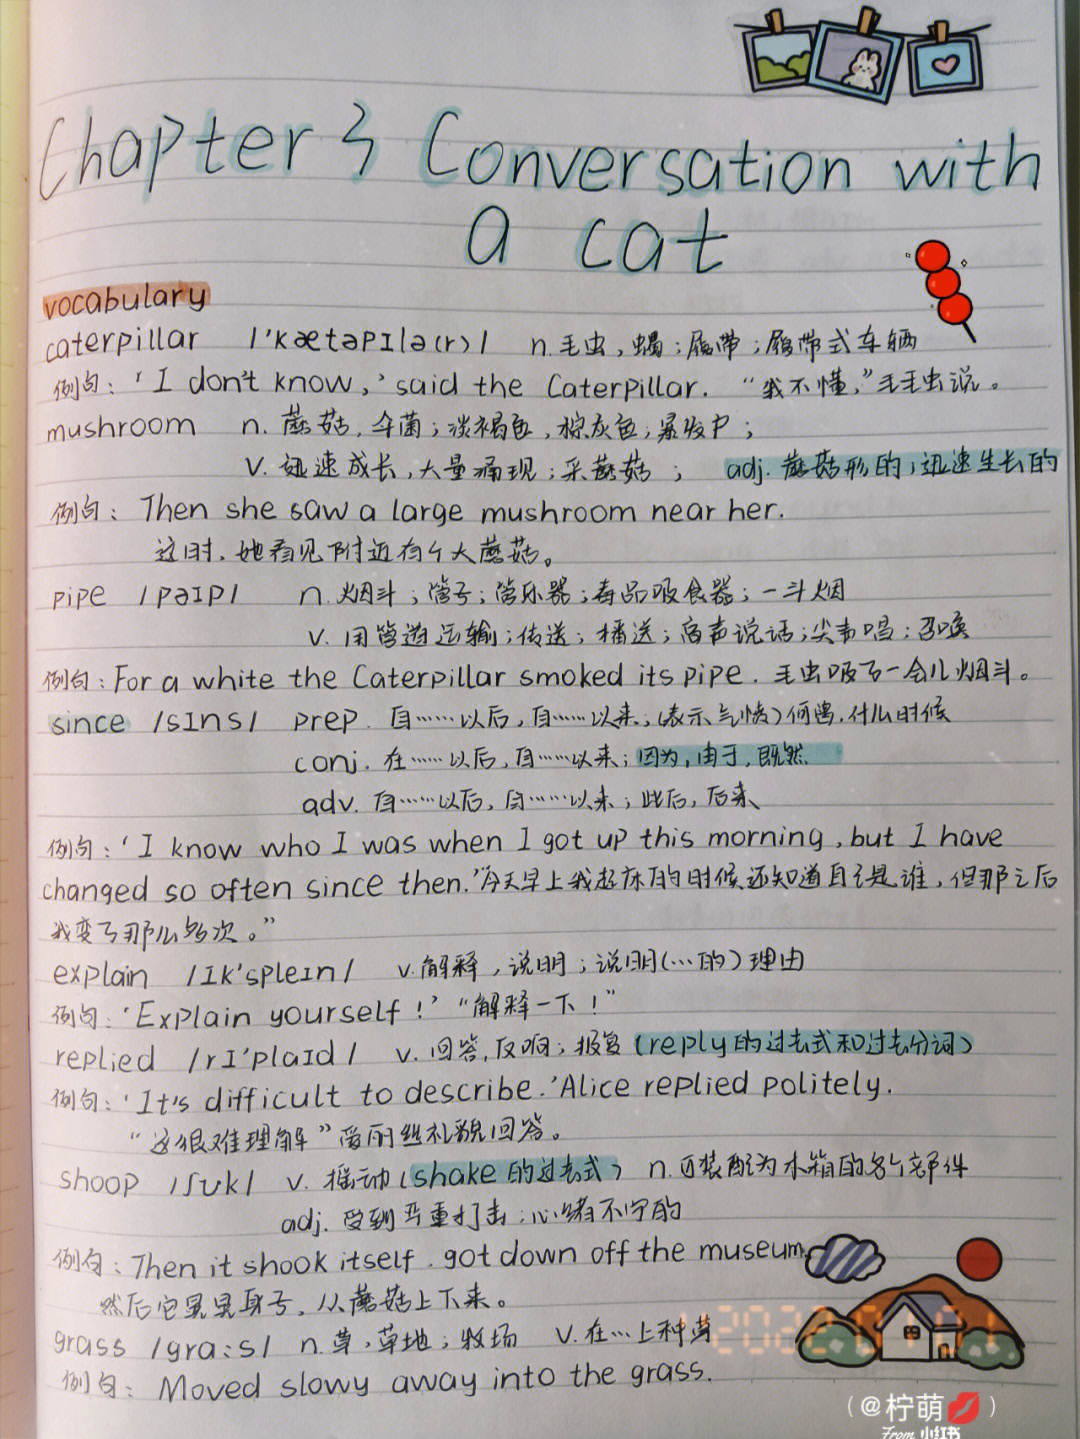 Chapter 3 Conversation with
a cat
vocabulary
caterpillar /'kætəpɪlə(r)/ n.毛虫,蠋;履带;履带式车辆
例句:'I don't know,'said the Caterpillar. “我不懂,”毛毛虫说。
mushroom n. 蘑菇,伞菌;淡褐色,棕灰色;暴发户;
v. 迅速成长,大量涌现;采蘑菇; adj.蘑菇形的;迅速生长的
例句: Then she saw a large mushroom near her.
这时,她看见附近有个大蘑菇。
pipe /pəɪp/ n.烟斗;管子;管乐器;毒品吸食器;一斗烟
v. 用管道运输;传送;播送;高声说话;尖声唱;召唤
例句:For a white the Caterpillar smoked its pipe. 毛虫吸了一会儿烟斗。
since /sɪns/ prep. 自……以后,自……以来;(表示气愤)何曾,什么时候
conj. 在……以后,自……以来;因为,由于,既然
adv. 自……以后,自……以来;此后,后来
例句:'I know who I was when I got up this morning, but I have
changed so often since then.'“今天早上我起床的时候还知道自己是谁,但那之后
我变了那么多次。”
explain /ɪk'spleɪn/ v.解释,说明;说明(…的)理由
例句:'Explain yourself!' “解释一下!”
replied /rɪ'plaɪd/ v. 回答,反响;报复(reply的过去式和过去分词)
例句:'It's difficult to describe.'Alice replied politely.
“这很难理解”爱丽丝礼貌回答。
shoop /ʃʊk/ v. 摇动(shake的过去式) n.可装配为木箱的各个部件
adj. 受到严重打击;心绪不宁的
例句:Then it shook itself. got down off the museum.
然后它晃晃身子,从蘑菇上下来。
grass /gra:s/ n.草,草地;牧场 v.在…上种草
例句: Moved slowy away into the grass.
(@柠萌💋)
From 小红书